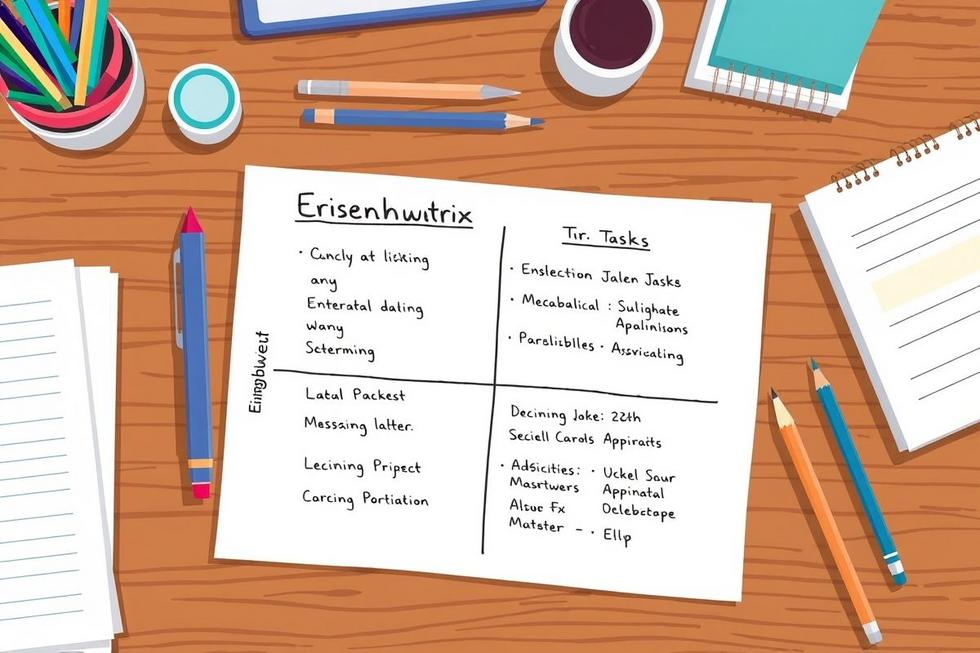 Erisenhwitrix
• Cuncly at licking
any
Enteratal daling
wany
Scterming
Tir. Tasks
• Enslection Jalen Jasks
• Mecabalical : Sulighate
Apalinisons
• Parsliblles • Assvicating
Latal Packest
Messaing latter.
Lecining Pripect
Carcing Portiation
Decining Joke: 22th
Seciell Carols Appiraits
• Adsicities: • Uckel Saur
Masrtwers Appinatal
Altuc Fx Oelebctope
Matster – • Ellp